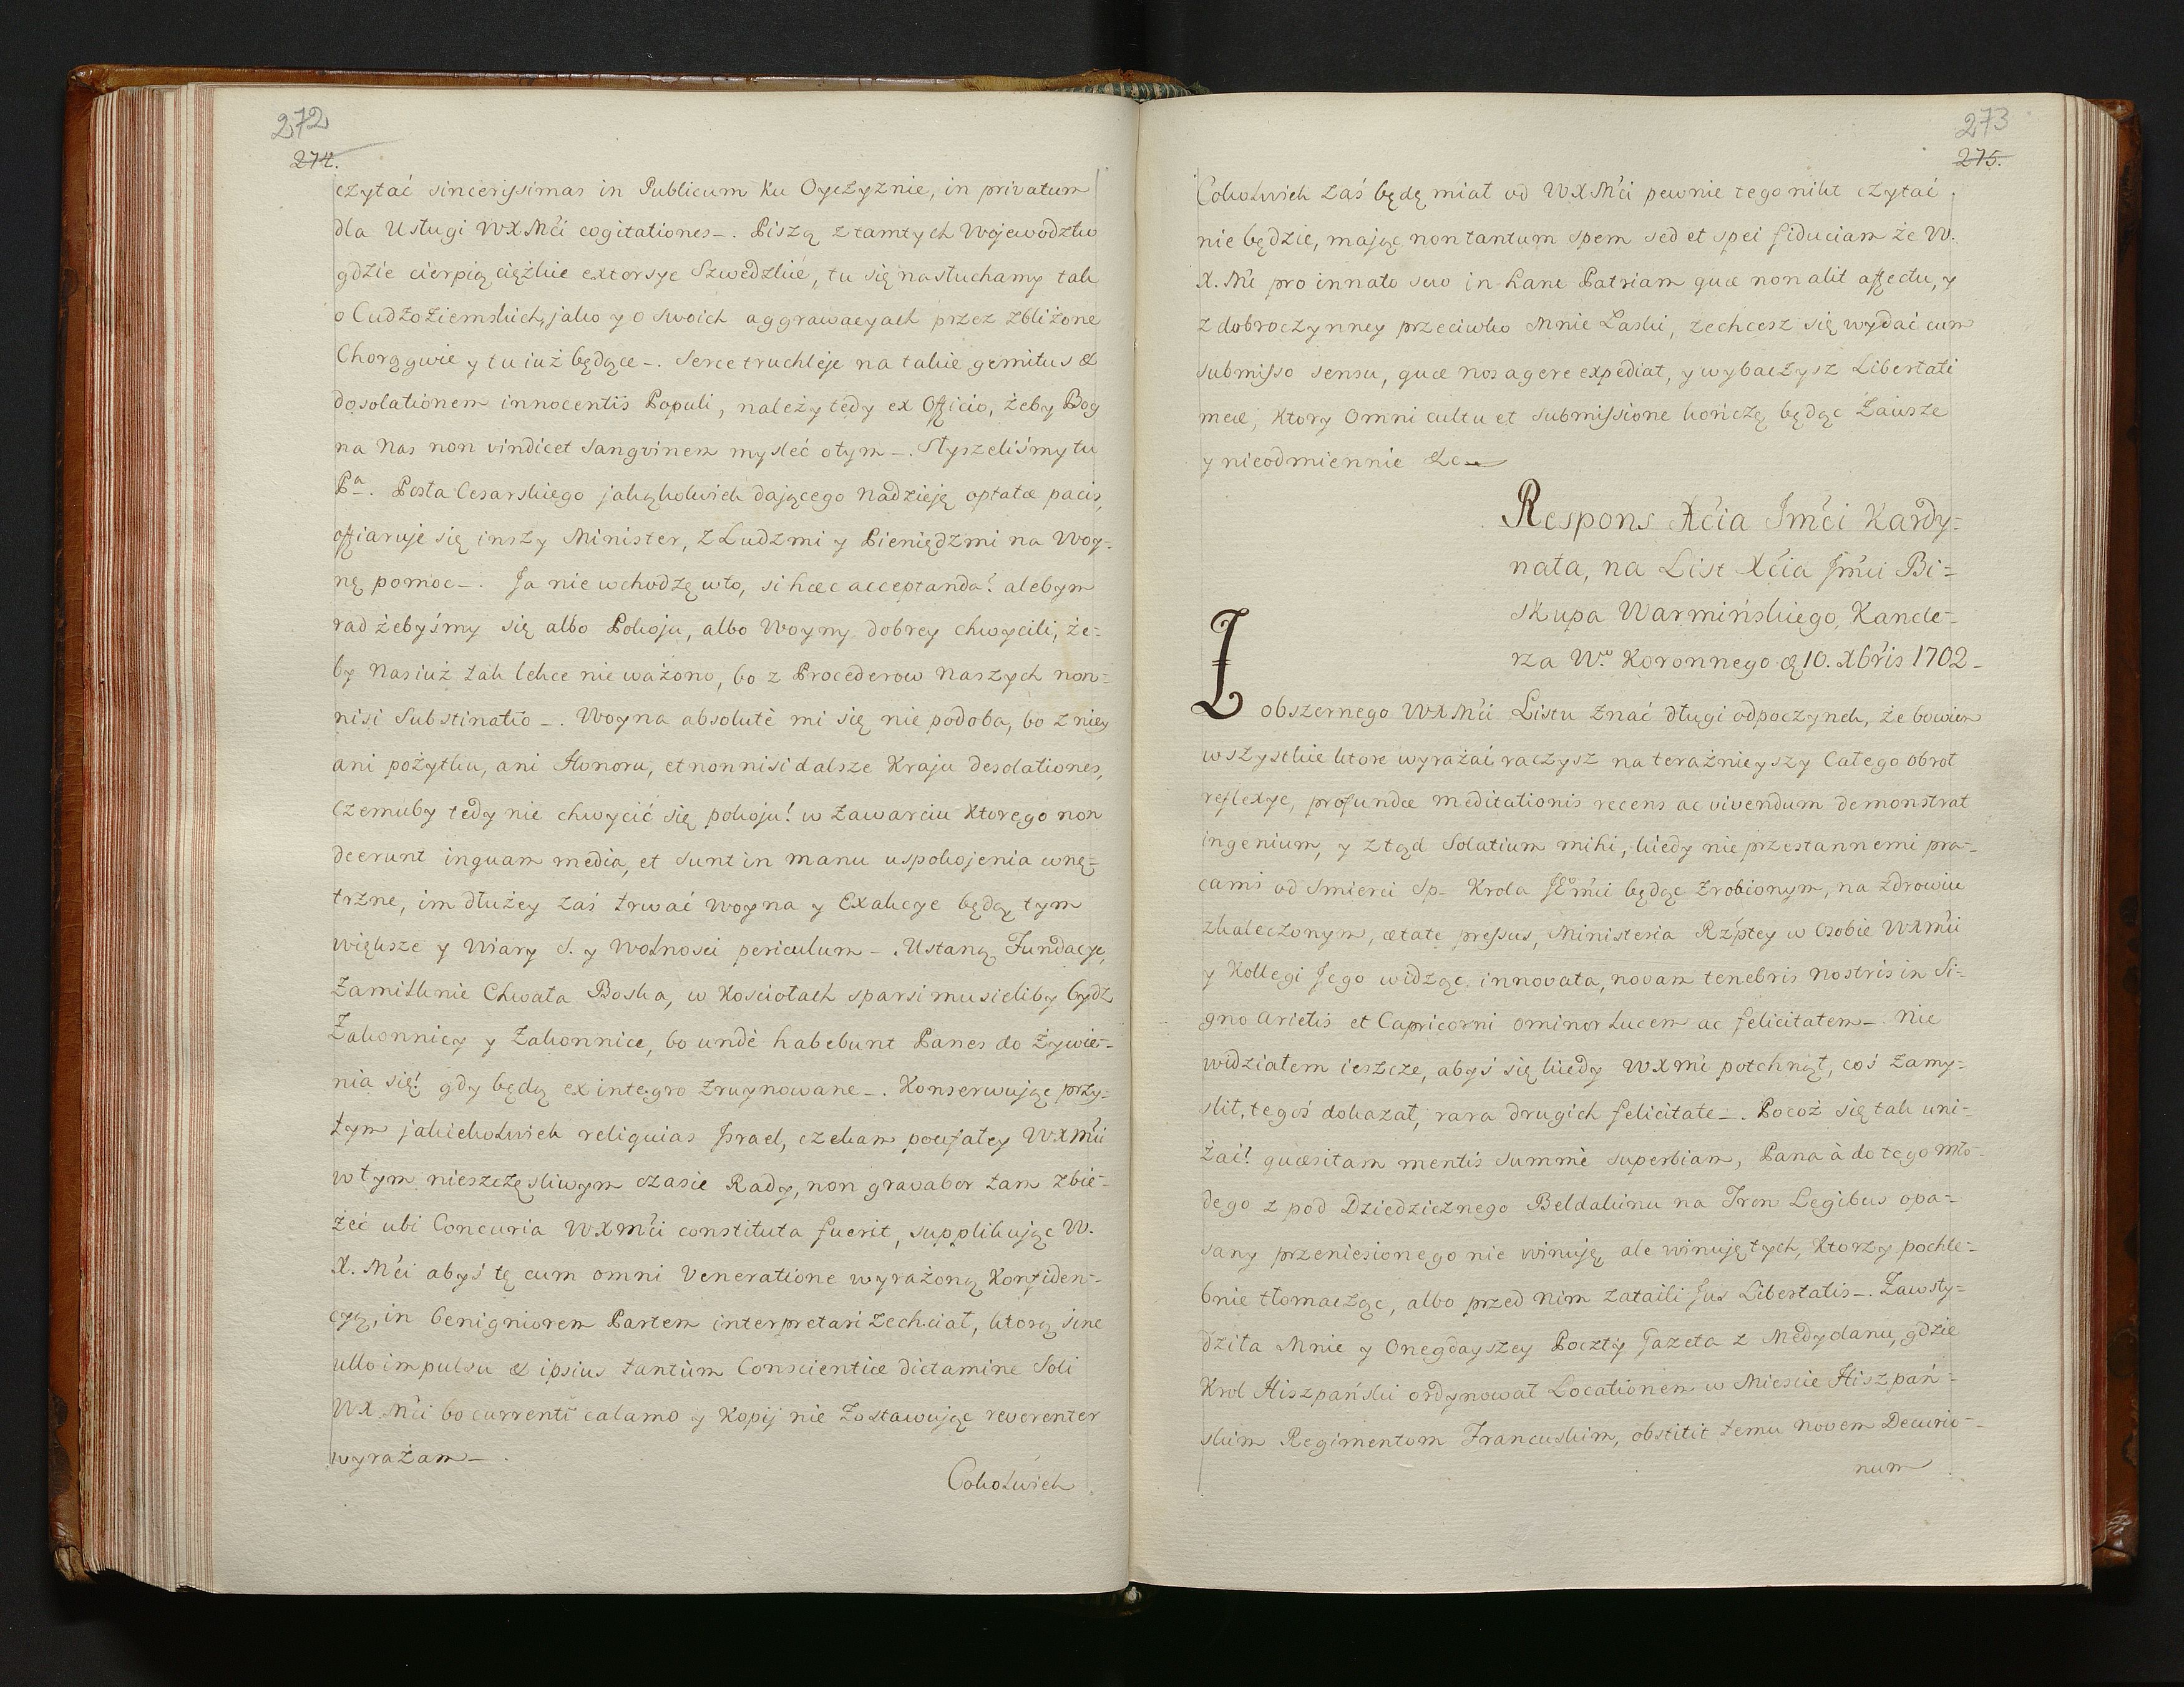 272
274.
czytać sincerissimas in Publicum ku Oyczyznie, in privatum
dla Usługi WXMci cogitationes_. Piszą z tamtych Wojewodztw
gdzie cierpią ciężkie extorsye Szwedzkie, tu się nasłuchamy tak
o Cudzoziemskich, jako y o swoich aggrawacyach przez zbliżone
Chorągwie y tu iuż będące_. Serce truchleje na takie gemitus &
dosolationem innocentis Populi, należy tedy ex Officio, żeby Bog
na Nas non vindicet Sangvinem mysleć o tym_. Słyszeliśmy tu
Pa. Posła Cesarskiego jakążkolwiek dającego nadzieję optatæ pacis,
offiaruje się inszy Minister, z Ludzmi y Pieniędzmi na Woy-
nę pomoc_. Ja nie wchodzę w to, si hæc acceptanda! ale bym
rad żebyśmy się albo Pokoju, albo Woyny dobrey chwycili, że-
by Nas iuż tak lekce nie ważono, bo z Procederow Naszych non-
nisi Substinatio_. Woyna absolutè mi się nie podoba, bo z niey
ani pożytku, ani Honoru, et nonnisi dalsze Kraju desolationes,
Czemuby tedy nie chwycić się pokoju! w zawarciu Ktorego non
deerunt inquam media, et sunt in manu uspokojenia wnę=
trzne, im dłużey zaś trwać Woyna y Exakcye będą tym
większe y Wiary S. y Wolnosci periculum_. Ustaną Fundacye,
Zamilknie Chwała Boska, w Kosciołach sparsi musieliby bydz
Zakonnicy y Zakonnice, bo undè habebunt Panes do Żywie-
nia się! gdy będą ex integro zruynowane_. Konserwując przy-
tym jakiekolwiek reliquias Israel, czekam poufałey WXMci
w tym nieszczęsliwym czasie Rady, non gravabor tam zbie-
żeć ubi Concuria WXMci constituta fuerit, supplikując W.
X. Mci abyś tę cum omni Veneratione wyrażoną Konfiden-
cyą, in benigniorem Partem interpretari zechciał, ktorą sine
ullo impulsu & ipsius tantùm Conscientiæ dictamine Soli
WXMci bo currenti calamo y Kopij nie zostawując reverenter
wyrażam_.
Cokolwiek
273
275.
Cokolwiek zaś będę miał od WXMci pewnie tego nikt czytać
nie będzie, mając non tantum spem sed et spei fiduciam że W.
X. Mć pro innato suo in hanc Patriam quæ non alit affectu, y
z dobroczynney przeciwko Mnie Łaski, zechcesz się wydać cum
submisso sensu, quæ nos agere expediat, y wybaczysz Libertati
meæ, Ktory Omni cultu et submissione kończę będąc Zawsze
y nieodmiennie &c_
Respons Xcia Jmci Kardy=
nała, na List Xcia Jmci Bi=
skupa Warmińskiego, Kancle=
rza Wo. Koronnego d 10. Xbris 1702_
Z obszernego WXMci Listu znać długi odpoczynek, że bowiem
wszystkie ktore wyrażać raczysz na terażnieyszy Całego obrot
reflexye, profundæ meditationis recens ac vivendum demonstrat
ingenium, y ztąd Solatium mihi, kiedy nieprzestannemi pra-
cami od Smierci Sp_ Krola JEomci będąc zrobionym, na zdrowiu
zkaleczonym, ætate pressus, Ministeria Rzptey w Osobie WXMci
y Kollegi Jego widząc innovata, novam tenebris nostris in Si-
gno Arietis et Capricorni ominor Lucem ac felicitatem_. Nie
widziałem ieszcze, abyś się kiedy WXMć potchnął, coś zamy-
slił, tegoś dokazał, rara drugich felicitate_. Pocoż się tak uni-
żać! quæsitam mentis summè superbiam, Pana à do tego mło-
dego z pod Dziedzicznego Beldakinu na Tron Legibus opa-
sany przeniesionego nie winuję, ale winuję tych, Ktorzy pochle-
bnie tłomacząc, albo przed nim zataili Jus Libertatis_. Zawsty-
dziła Mnie y Onegdayszey Poczty Gazeta z Medyolanu, gdzie
Krol Hiszpański ordynował Locationem w Miescie Hiszpań-
skim Regimentom Francuskim, obstitit temu novem Decurio-
num